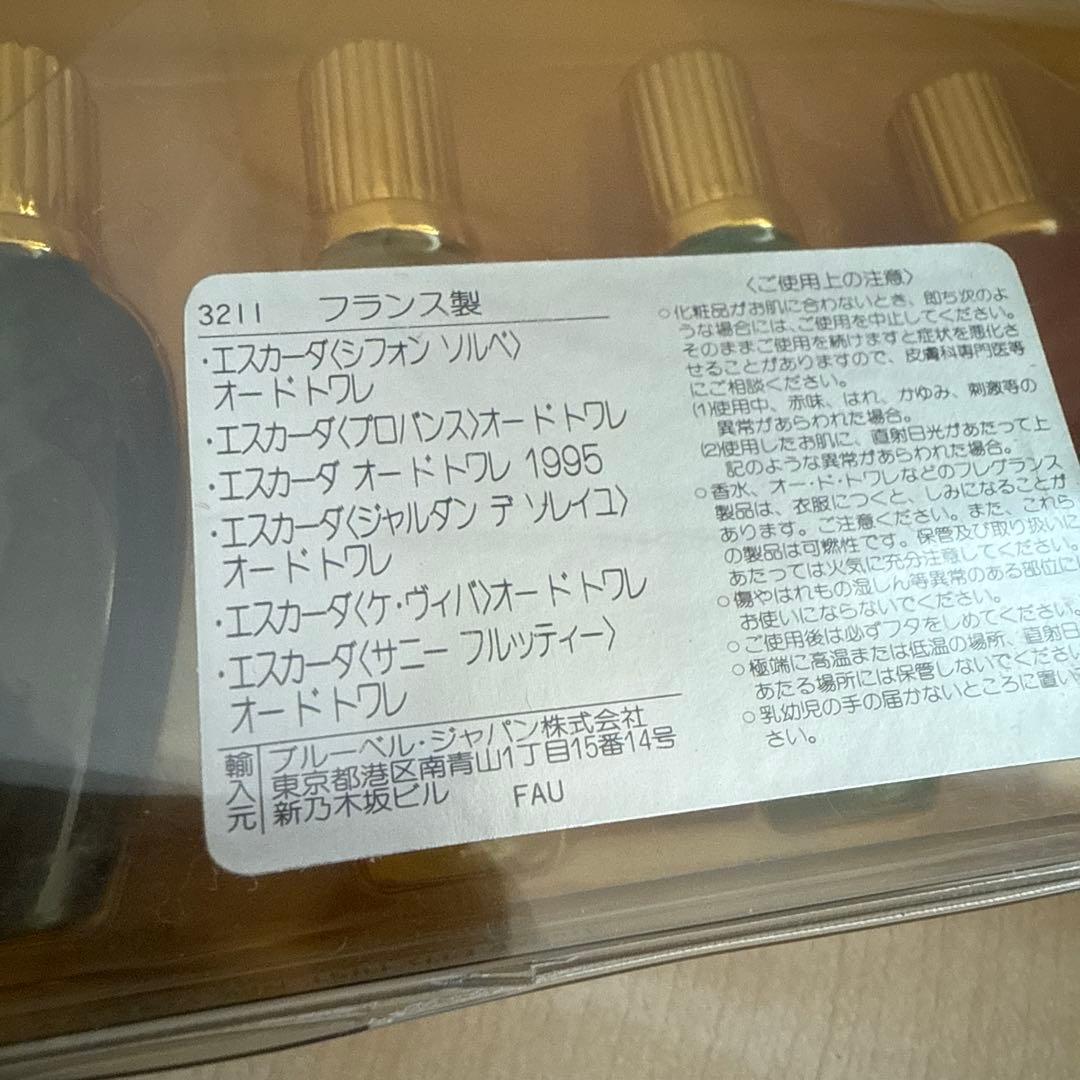 3211 フランス製
・エスカーダ〈シフォン ソルベ〉
オードトワレ
・エスカーダ〈プロバンス〉オードトワレ
・エスカーダ オードトワレ 1995
・エスカーダ〈ジャルダン デ ソレイユ〉
オードトワレ
・エスカーダ〈ケ・ヴィバ〉オードトワレ
・エスカーダ〈サニー フルッティー〉
オードトワレ
輸入元
ブルーベル・ジャパン株式会社
東京都港区南青山1丁目15番14号
新乃木坂ビル FAU
〈ご使用上の注意〉
○化粧品がお肌に合わないとき、即ち次のよ
うな場合には、ご使用を中止してください。
そのままご使用を続けますと症状を悪化さ
せることがありますので、皮膚科専門医等
にご相談ください。
(1)使用中、赤味、はれ、かゆみ、刺激等の
異常があらわれた場合。
(2)使用したお肌に、直射日光があたって上
記のような異常があらわれた場合。
○香水、オー・ド・トワレなどのフレグランス
製品は、衣服につくと、しみになることが
あります。ご注意ください。また、これら
の製品は可燃性です。保管及び取り扱いに
あたっては火気に充分注意してください。
○傷やはれもの湿しん等異常のある部位に
お使いにならないでください。
○ご使用後は必ずフタをしめてください。
○極端に高温または低温の場所、直射日
あたる場所には保管しないでください
○乳幼児の手の届かないところに置い
さい。